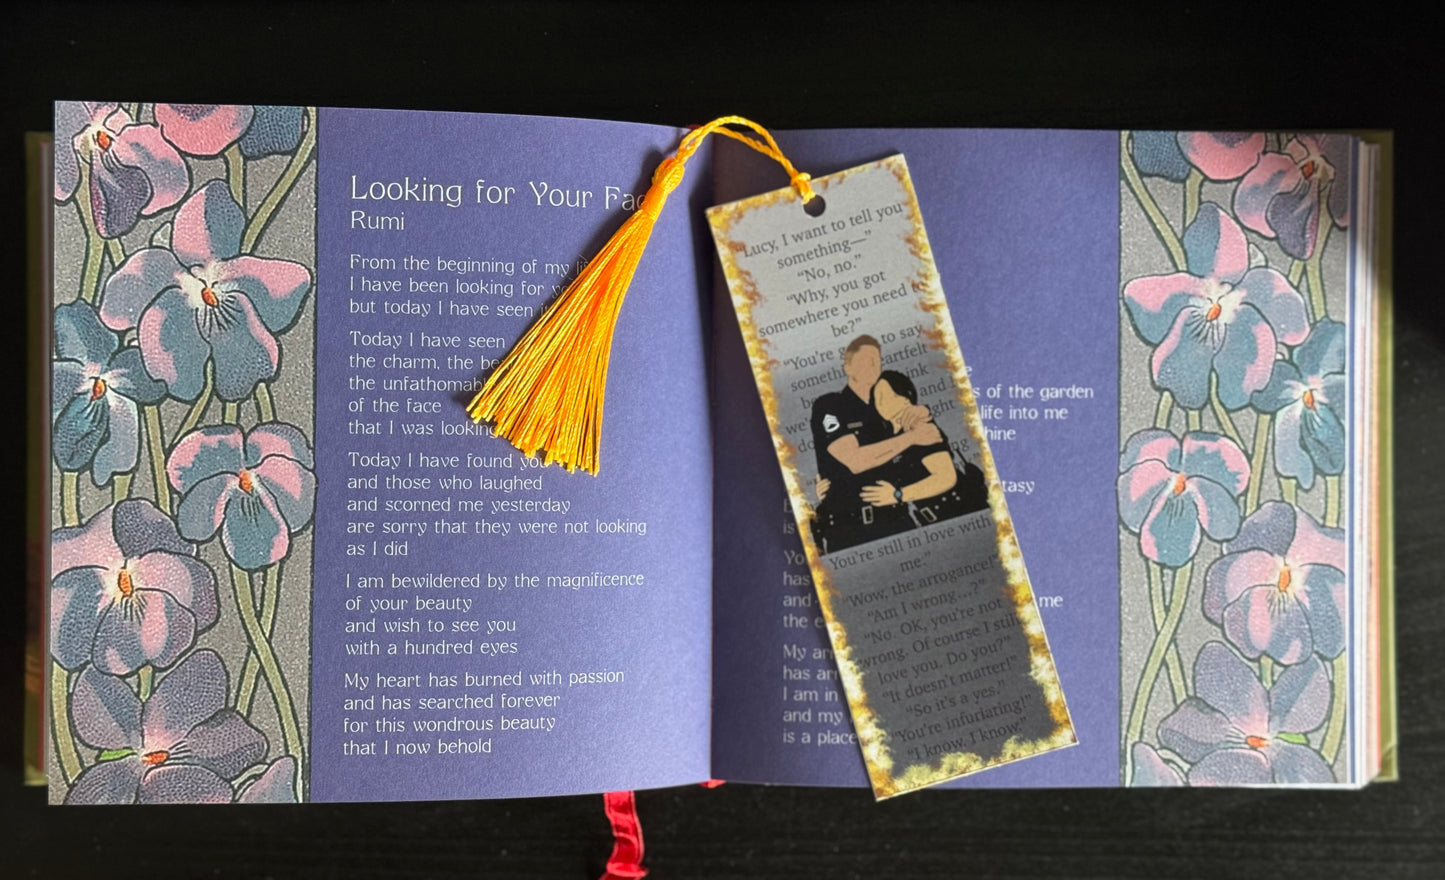 Looking for Your
Rumi
From the beginning of my
I have been looking for
but today I have seen
Today I have seen
the charm, the
the
of the face
that I was looking
Today I have found
and those who laughed
and scorned me yesterday
are sorry that they were not looking
as I did
I am bewildered by the magnificence
of your beauty
and wish to see you
with a hundred eyes
My heart has burned with passion
and has searched forever
for this wondrous beauty
that I now behold
of the garden
life into me
has
and me
the
My
has
I am in
and my
is a place
"Lucy, I want to tell you
something—"
"No, no."
"Why, you got
somewhere you need to
be?"
"You're to say
and
You're still in love with
me."
"Wow, the arrogance!"
"Am I wrong...?"
"No. OK, you're not
wrong. Of course I still
love you. Do you?"
"It doesn't matter!"
"So it's a yes."
"You're infuriating!"
"I know. I know."